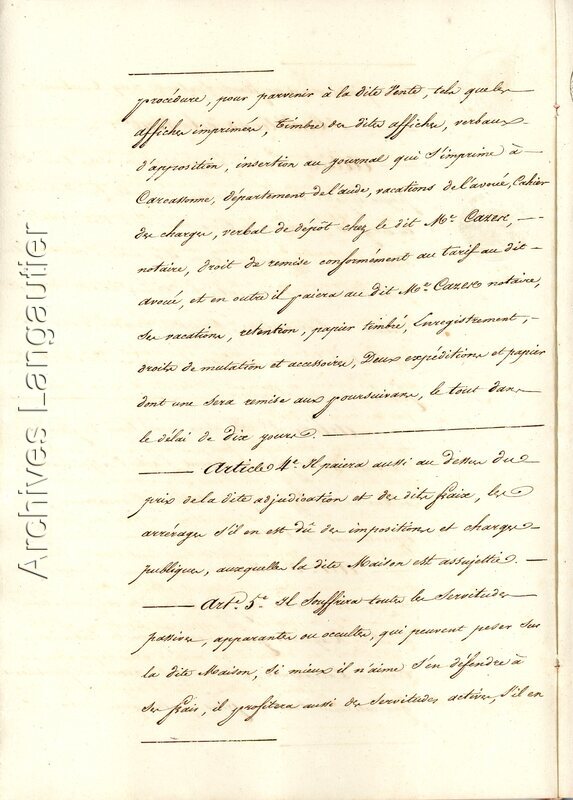 procédure, pour parvenir à la dite Vente, tels que les
affiches imprimées, timbre des dites affiches, verbaux
d'apposition, insertion au journal qui s'imprime à
Carcassonne, département de l'aude, vacations de l'avoué, Cahier
des charges, verbal de dépôt chez le dit Me. Cazes, —
notaire, droit de remise conformément au tarif au dit —
avoué, et en outre il paiera au dit Me. Cazes notaire,
ses vacations, retention, papier timbré, Enregistrement, —
droits de mutation et accessoires, Deux expéditions et papier
dont une sera remise aux poursuivans, le tout dans
le délai de dix jours. —
— Article 4e. Il paiera aussi au dessus du
prix de la dite adjudication et des dits fraix, les
arrérages s'il en est dû des impositions et charges
publiques, auxquelles la dite Maison est assujettie. —
— Art. 5e. Il Souffrira toutes les Servitudes
passives, apparantes ou occultes, qui peuvent peser sur
la dite Maison, si mieux il n'aime s'en défendre à
ses frais, il profitera aussi des servitudes actives, s'il en
Archives Langautier